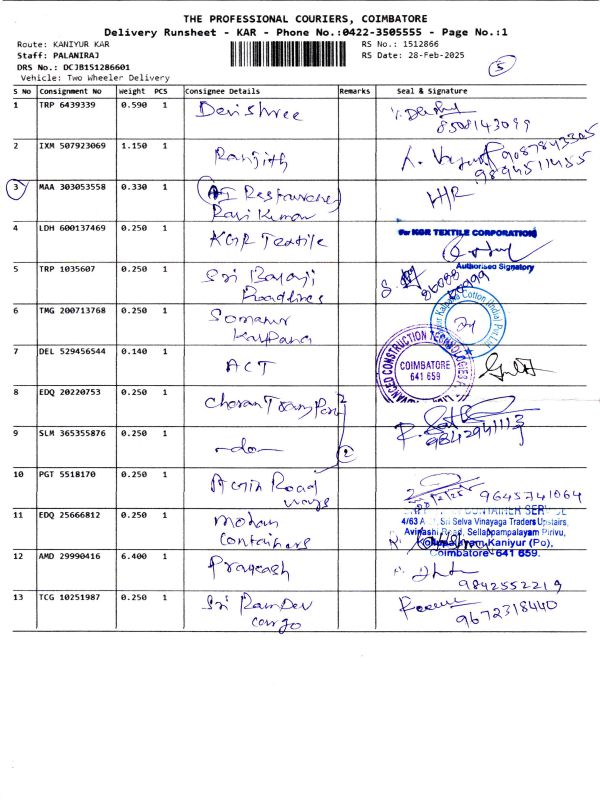 THE PROFESSIONAL COURIERS, COIMBATORE
Delivery Runsheet - KAR - Phone No.:0422-3505555 - Page No.:1
Route: KANIYUR KAR RS No.: 1512866
Staff: PALANIRAJ RS Date: 28-Feb-2025
DRS No.: DCJB151286601
Vehicle: Two Wheeler Delivery
5
S No Consignment No Weight PCS Consignee Details Remarks Seal & Signature
1 TRP 6439339 0.590 1 Devishree
8508143099
2 IXM 507923069 1.150 1 Ranjith 9087843305
9894511455
3 MAA 303053558 0.330 1
Ravi Kumar
4 LDH 600137469 0.250 1 KGR Textile For KGR TEXTILE CORPORATION
Authorised Signatory
5 TRP 1035607 0.250 1 Sri Balaji
Roadlines
6 TMG 200713768 0.250 1 Somanur
Kalpana Kalpana Cotton (India) Pvt Ltd
7 DEL 529456544 0.140 1 ACT ADVANCED CONSTRUCTION TECHNOLOGIES
COIMBATORE
641 659
8 EDQ 20220753 0.250 1 Cheran Transport
9842941113
9 SLM 365355876 0.250 1 -do- 2
10 PGT 5518170 0.250 1 Road
ways 9645741064
11 EDQ 25666812 0.250 1 Mohan
Containers CONTAINER SERVICE
4/63 A Sri Selva Vinayaga Traders Upstairs,
Avinashi Road, Sellappampalayam Pirivu,
Kaniyur (Po),
Coimbatore-641 659.
12 AMD 29990416 6.400 1 Pragash
9842552219
13 TCG 10251987 0.250 1 Sri RamDev
cargo 9672318440